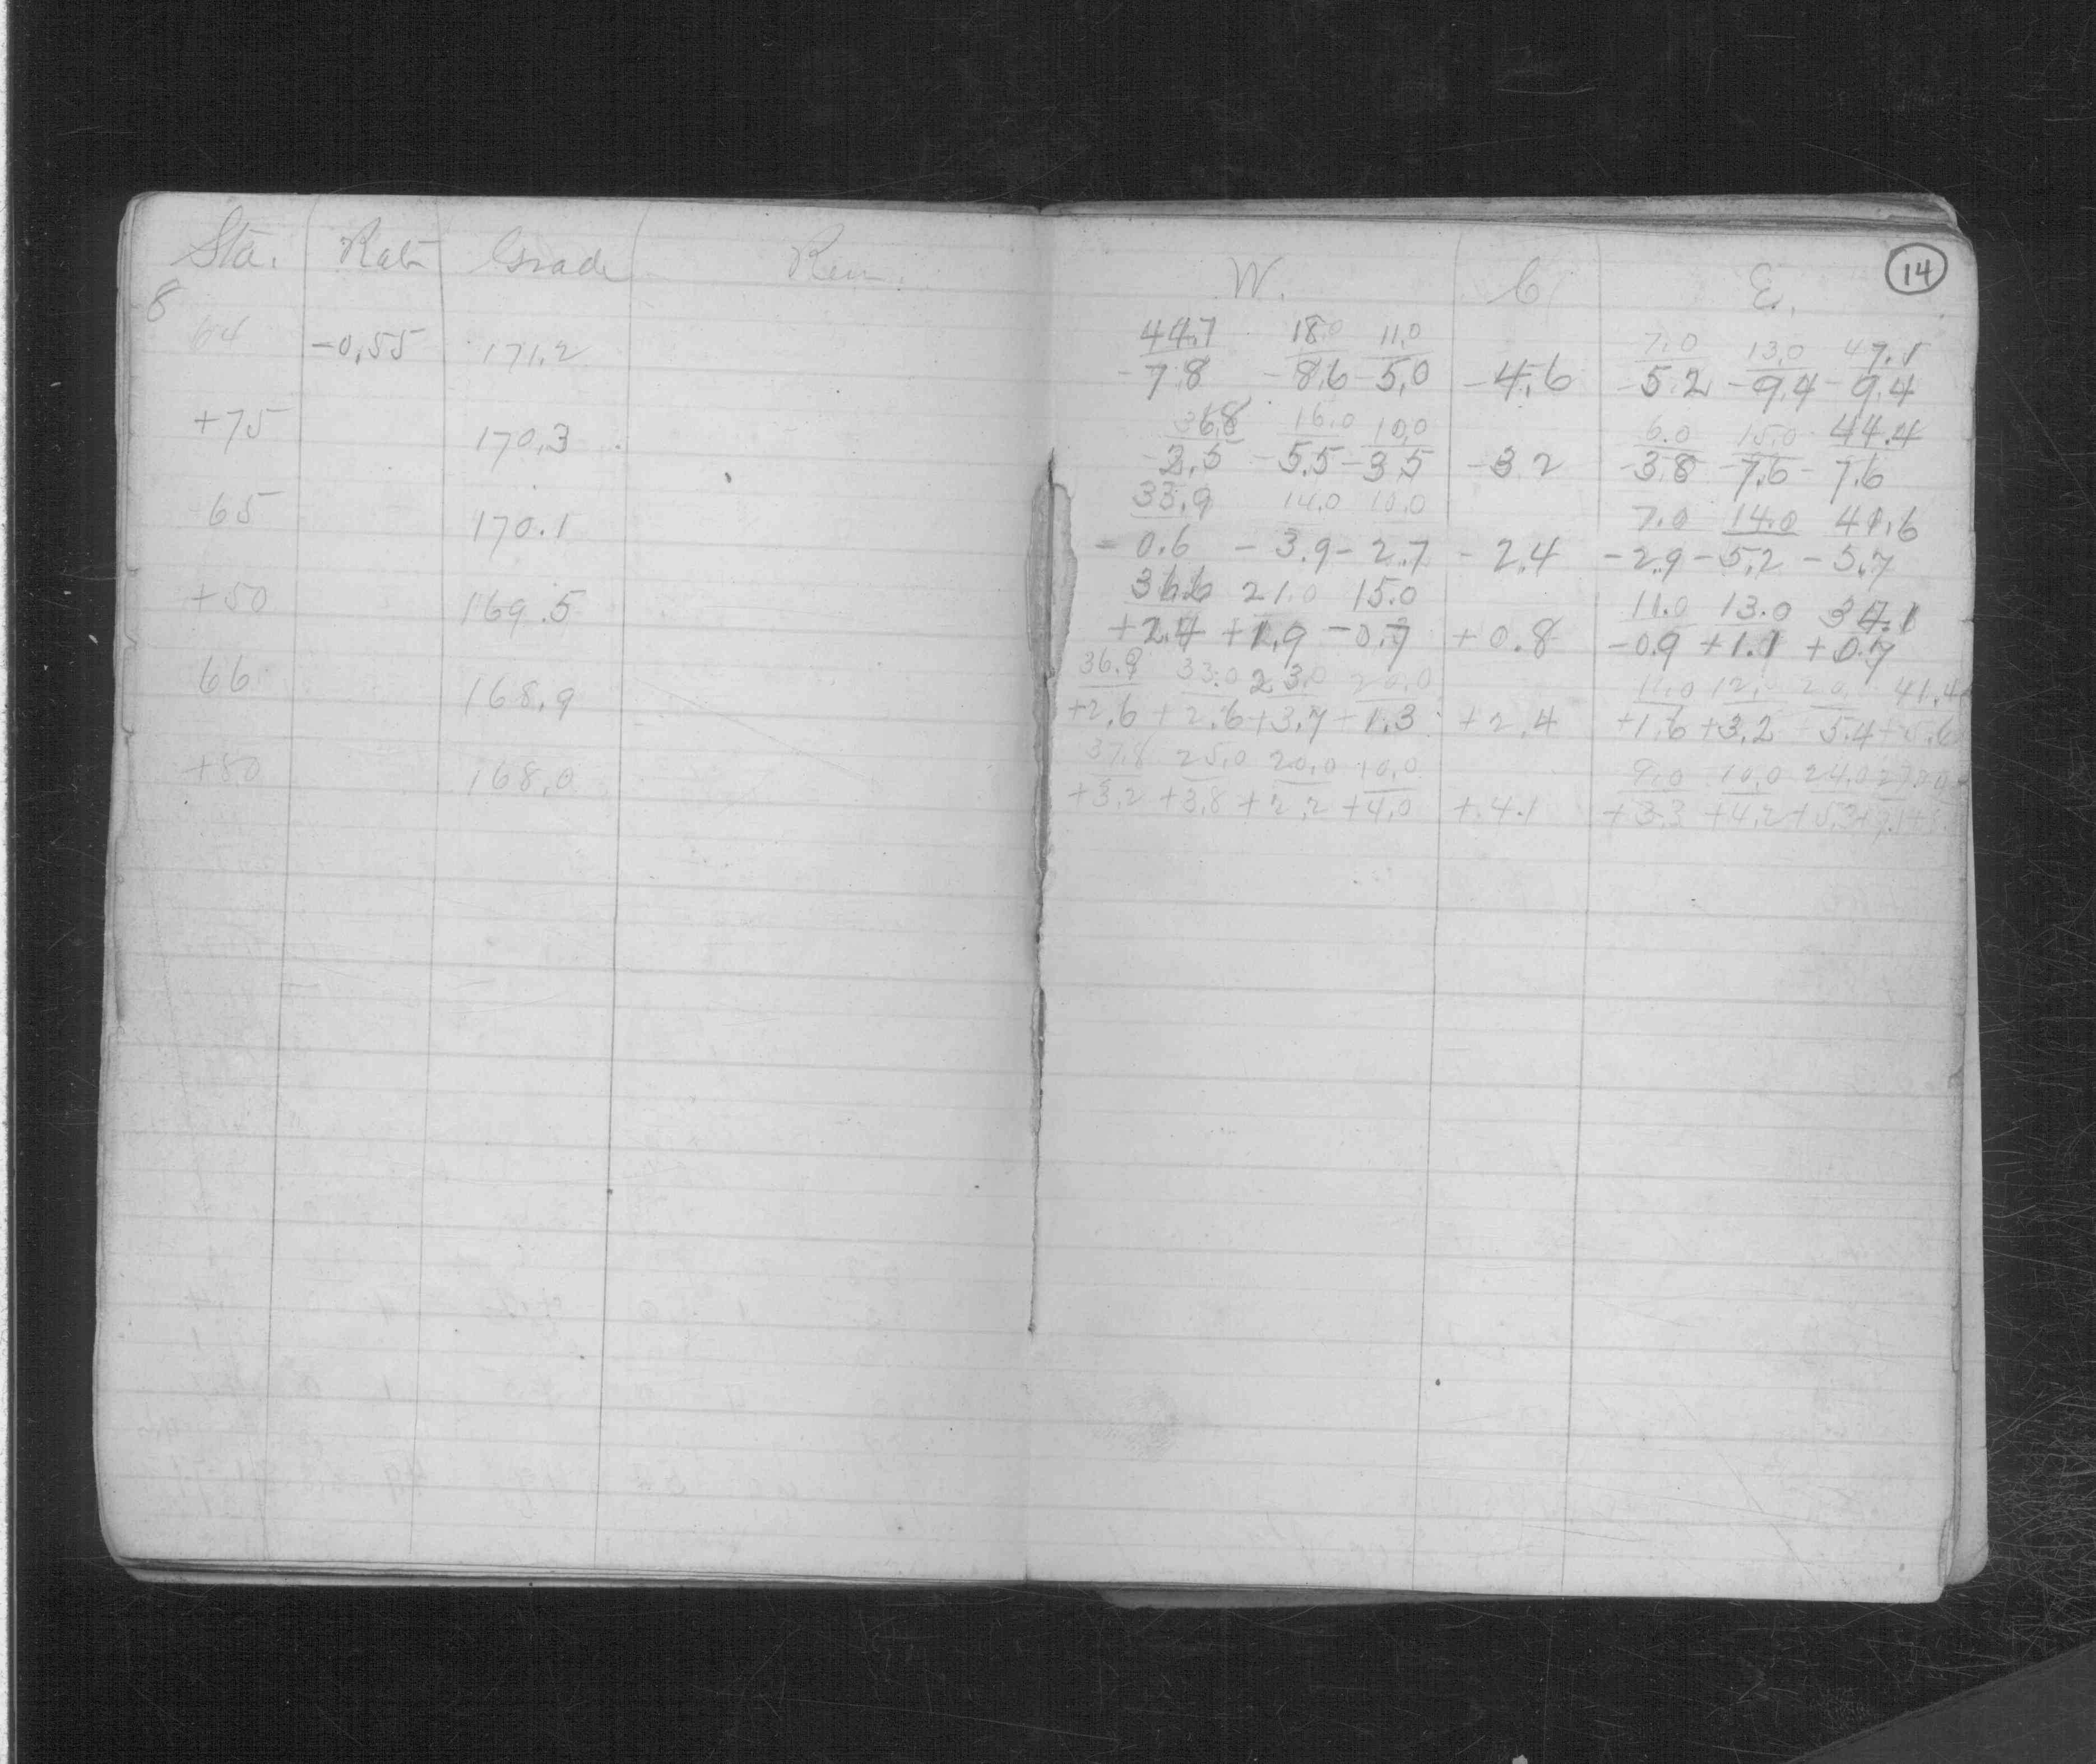 Sta. Rate Grade Rem. W. C E. 14
8
44.7 18.0 11.0 7.0 13.0 47.1
64 -0.55 171.2 -7.8 -8.6 -5.0 -4.6 -5.2 -9.4 -9.4
36.8 16.0 10.0 6.0 15.0 44.4
+75 170.3 -5.5 -3.5 -3.2 -3.8 -7.6 -7.6
33.9 14.0 10.0 7.0 14.0 41.6
65 170.1 -0.6 -3.9 -2.7 -2.4 -2.9 -5.2 -5.7
36.6 21.0 15.0 11.0 13.0 34.1
+50 169.5 +2.4 +1.9 -0.7 +0.8 -0.9 +1.1 +0.7
36.9 33.0 23.0 20.0 11.0 12. 20. 41.4
66 168.9 +2.6 +2.6 +3.7 +1.3 +2.4 +1.6 +3.2 5.4 +5.6
37.8 25.0 20.0 10.0 9.0 10.0 24.0
+80 168.0 +3.2 +3.8 +2.2 +4.0 +4.1 +3.3 +4.2 +5.3